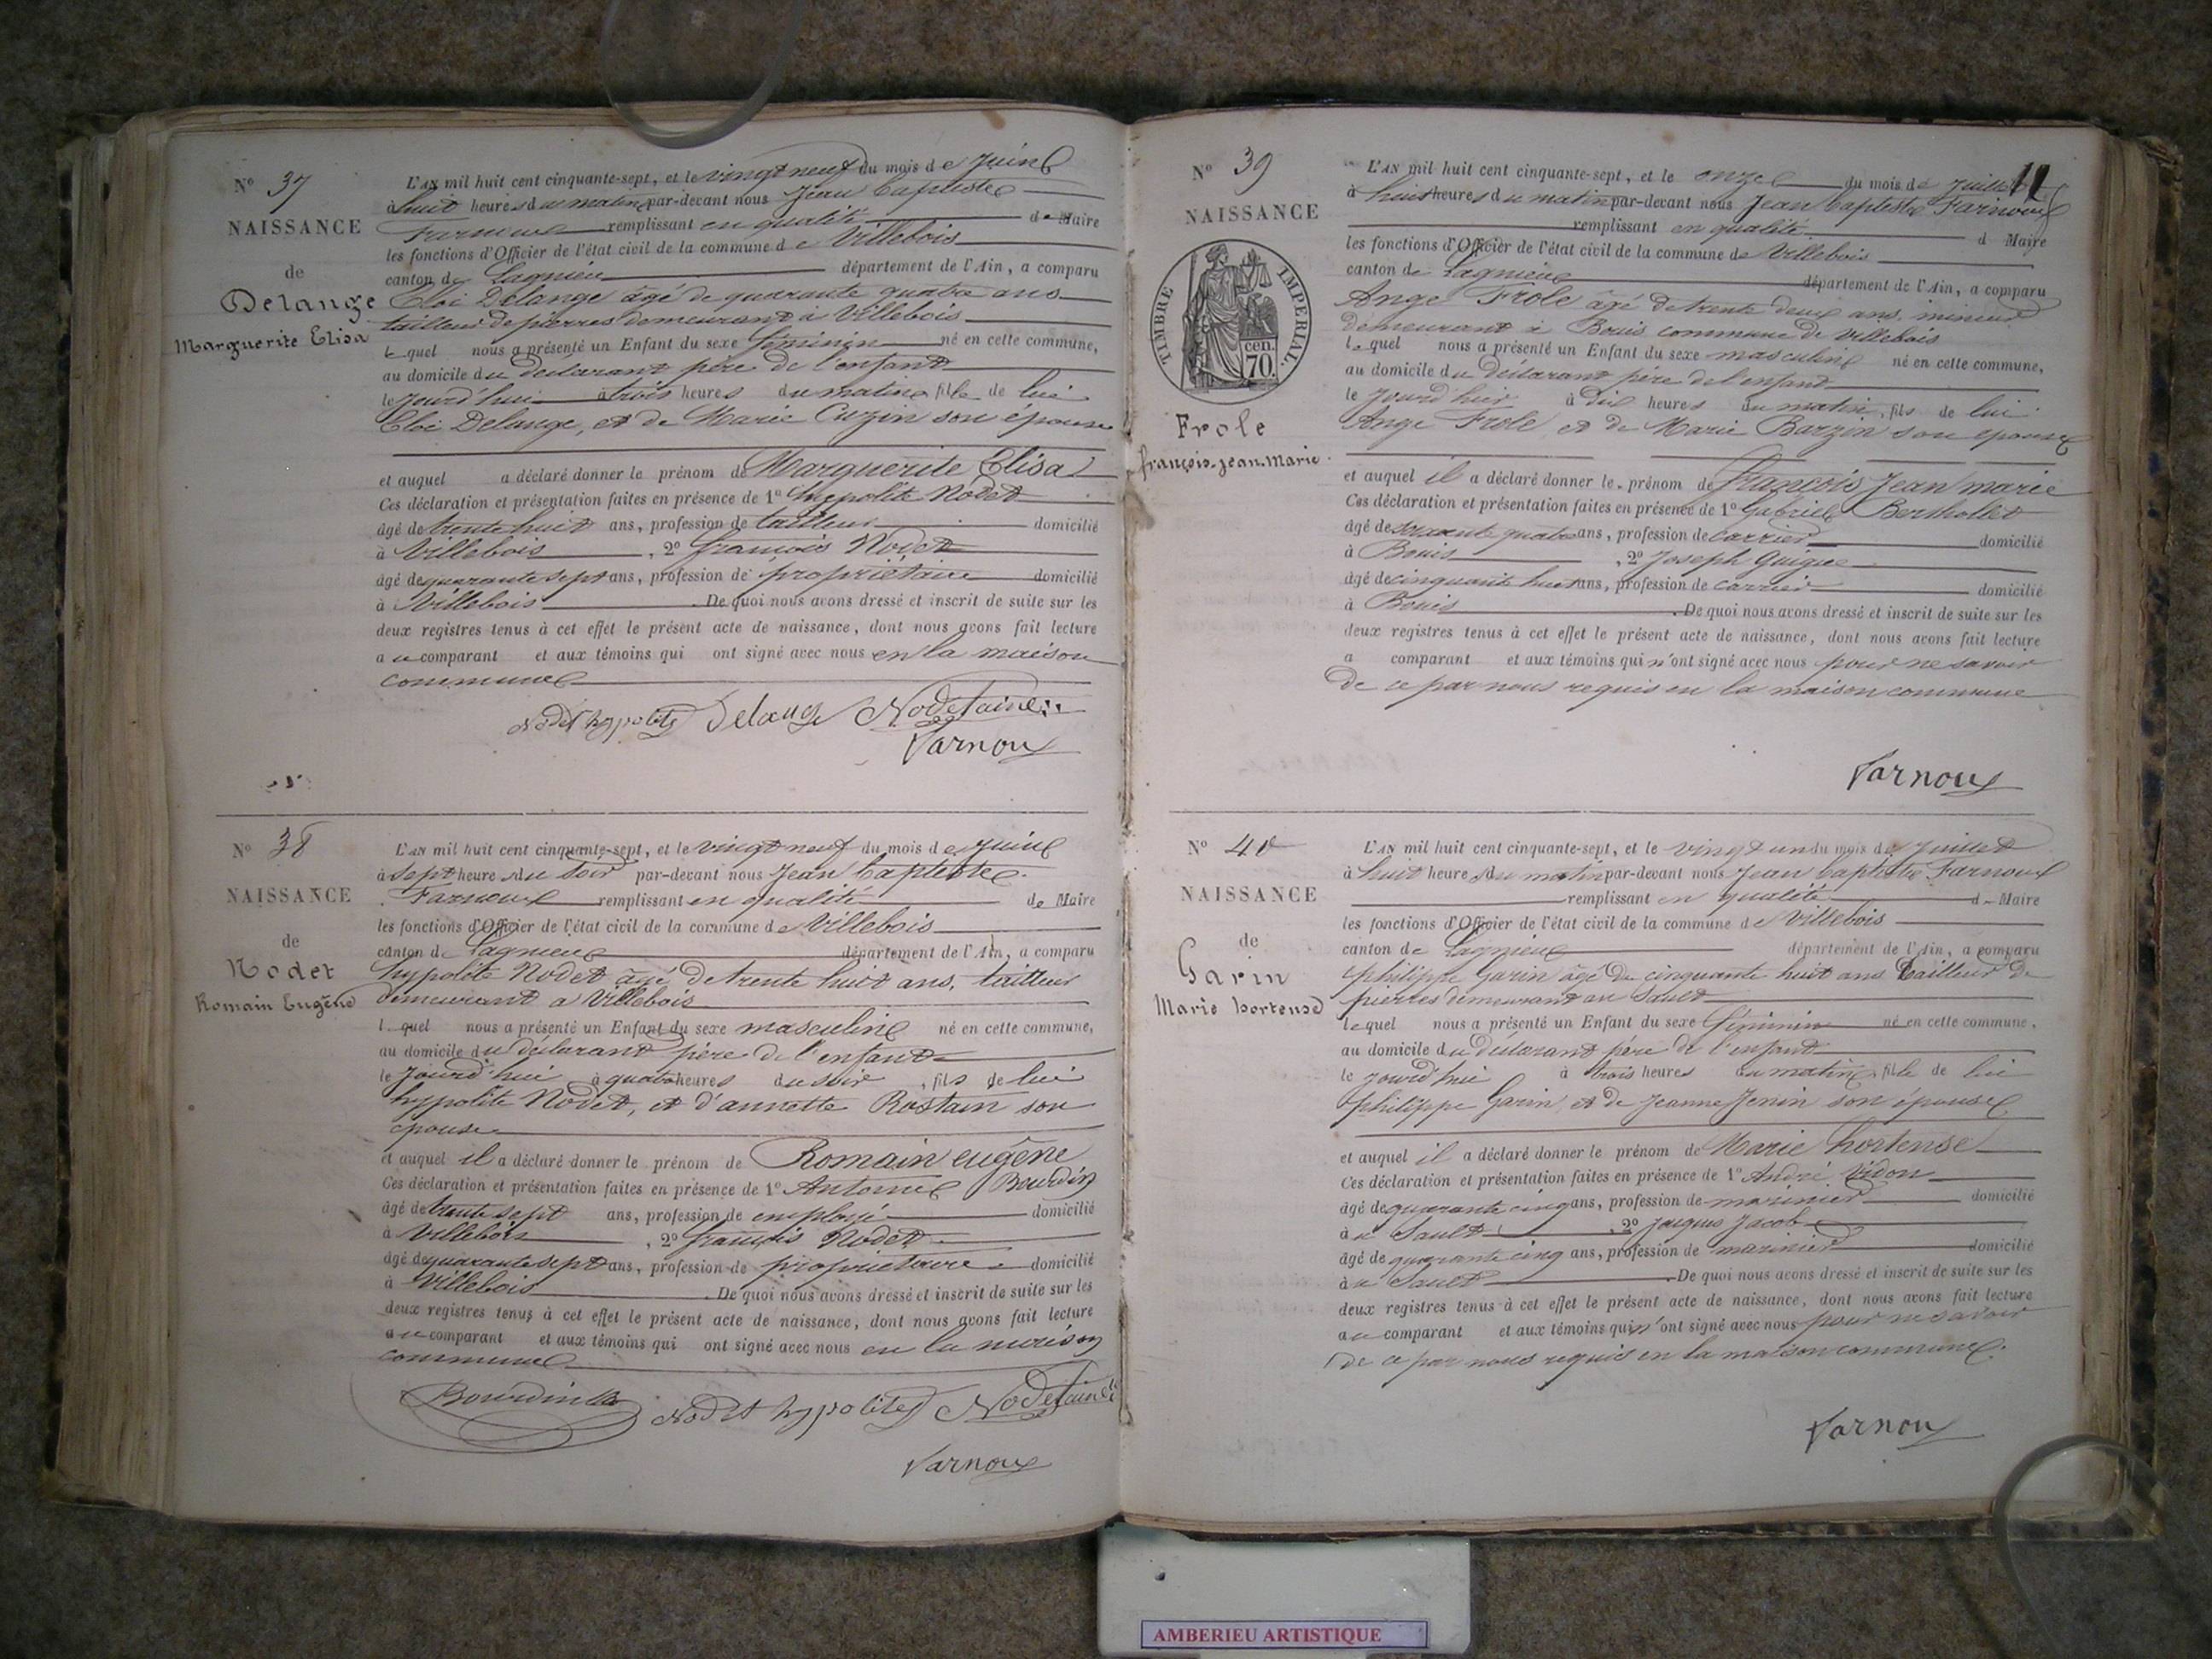 N° 37
NAISSANCE
de
Delange
Marguerite Elisa
L'AN mil huit cent cinquante-sept, et le vingt neuf du mois de Juin
à huit heures du matin par-devant nous Jean baptiste
Farnoux remplissant en qualité de Maire
les fonctions d'Officier de l'état civil de la commune de Villebois
canton de Lagnieu département de l'Ain, a comparu
Eloi Delange âgé de quarante quatre ans
tailleur de pierres demeurant à Villebois
lequel nous a présenté un Enfant du sexe féminin né en cette commune,
au domicile du déclarant père de l'enfant
le jourd'hui à trois heures du matin, fille de lui
Eloi Delange, et de Marie Cuzin son épouse
et auquel a déclaré donner le prénom de Marguerite Elisa
Ces déclaration et présentation faites en présence de 1° hyppolite Nodet
âgé de trente huit ans, profession de tailleur domicilié
à Villebois, 2° françois Nodet
âgé de quarante sept ans, profession de propriétaire domicilié
à Villebois. De quoi nous avons dressé et inscrit de suite sur les
deux registres tenus à cet effet le présent acte de naissance, dont nous avons fait lecture
au comparant et aux témoins qui ont signé avec nous en la maison
commune
Nodet hyppolite Delange Nodet ainé
Farnoux
N° 38
NAISSANCE
de
Nodet
Romain Eugène
L'AN mil huit cent cinquante-sept, et le vingt neuf du mois de juin
à sept heures du soir par-devant nous Jean baptiste
Farnoux remplissant en qualité de Maire
les fonctions d'Officier de l'état civil de la commune de Villebois
canton de Lagnieu département de l'Ain, a comparu
hyppolite Nodet âgé de trente huit ans, tailleur
demeurant a Villebois
lequel nous a présenté un Enfant du sexe masculin né en cette commune,
au domicile du déclarant père de l'enfant
le jourd'hui à quatre heures du soir, fils de lui
hyppolite Nodet, et d'annette Rostain son
épouse
et auquel il a déclaré donner le prénom de Romain eugène
Ces déclaration et présentation faites en présence de 1° Antoine Bourdin
âgé de trente sept ans, profession de employé domicilié
à Villebois, 2° françois Nodet
âgé de quarante sept ans, profession de propriétaire domicilié
à Villebois. De quoi nous avons dressé et inscrit de suite sur les
deux registres tenus à cet effet le présent acte de naissance, dont nous avons fait lecture
au comparant et aux témoins qui ont signé avec nous en la maison
commune
Bourdin Nodet hyppolite Nodet ainé
Farnoux
12
N° 39
NAISSANCE
TIMBRE IMPERIAL.
70 cen.
Frole
françois-jean-marie
L'AN mil huit cent cinquante-sept, et le onze du mois de Juillet
à huit heures du matin par-devant nous Jean baptiste Farnoux
remplissant en qualité d Maire
les fonctions d'Officier de l'état civil de la commune de Villebois
canton de Lagnieu département de l'Ain, a comparu
Ange Frole âgé de trente deux ans, mineur
demeurant à Bouis commune de Villebois
lequel nous a présenté un Enfant du sexe masculin né en cette commune,
au domicile du déclarant père de l'enfant
le jourd'hier à dix heures du matin, fils de lui
Ange Frole et de Marie Barzin son épouse
et auquel il a déclaré donner le prénom de françois Jean marie
Ces déclaration et présentation faites en présence de 1° Gabriel Berthollet
âgé de soixante quatre ans, profession de carrier domicilié
à Bouis, 2° Joseph Guigue
âgé de cinquante huit ans, profession de carrier domicilié
à Bouis. De quoi nous avons dressé et inscrit de suite sur les
deux registres tenus à cet effet le présent acte de naissance, dont nous avons fait lecture
a comparant et aux témoins qui n'ont signé avec nous pour ne savoir
de ce par nous requis en la maison commune
Farnoux
N° 40
NAISSANCE
de
Garin
Marie hortense
L'AN mil huit cent cinquante-sept, et le vingt un du mois de juillet
à huit heures du matin par-devant nous Jean baptiste Farnoux
remplissant en qualité de Maire
les fonctions d'Officier de l'état civil de la commune de Villebois
canton de Lagnieu département de l'Ain, a comparu
philippe Garin âgé de cinquante huit ans tailleur de
pierres demeurant au Sault
lequel nous a présenté un Enfant du sexe féminin né en cette commune,
au domicile du déclarant père de l'enfant
le jourd'hui à trois heures du matin, fille de lui
philippe Garin, et de Jeanne Jenin son épouse
et auquel il a déclaré donner le prénom de Marie hortense
Ces déclaration et présentation faites en présence de 1° André Vidon
âgé de quarante cinq ans, profession de marinier domicilié
à u Sault, 2° Jacques Jacob
âgé de quarante cinq ans, profession de marinier domicilié
à u Sault. De quoi nous avons dressé et inscrit de suite sur les
deux registres tenus à cet effet le présent acte de naissance, dont nous avons fait lecture
au comparant et aux témoins qui n'ont signé avec nous pour ne savoir
de ce par nous requis en la maison commune.
Farnoux
AMBERIEU ARTISTIQUE